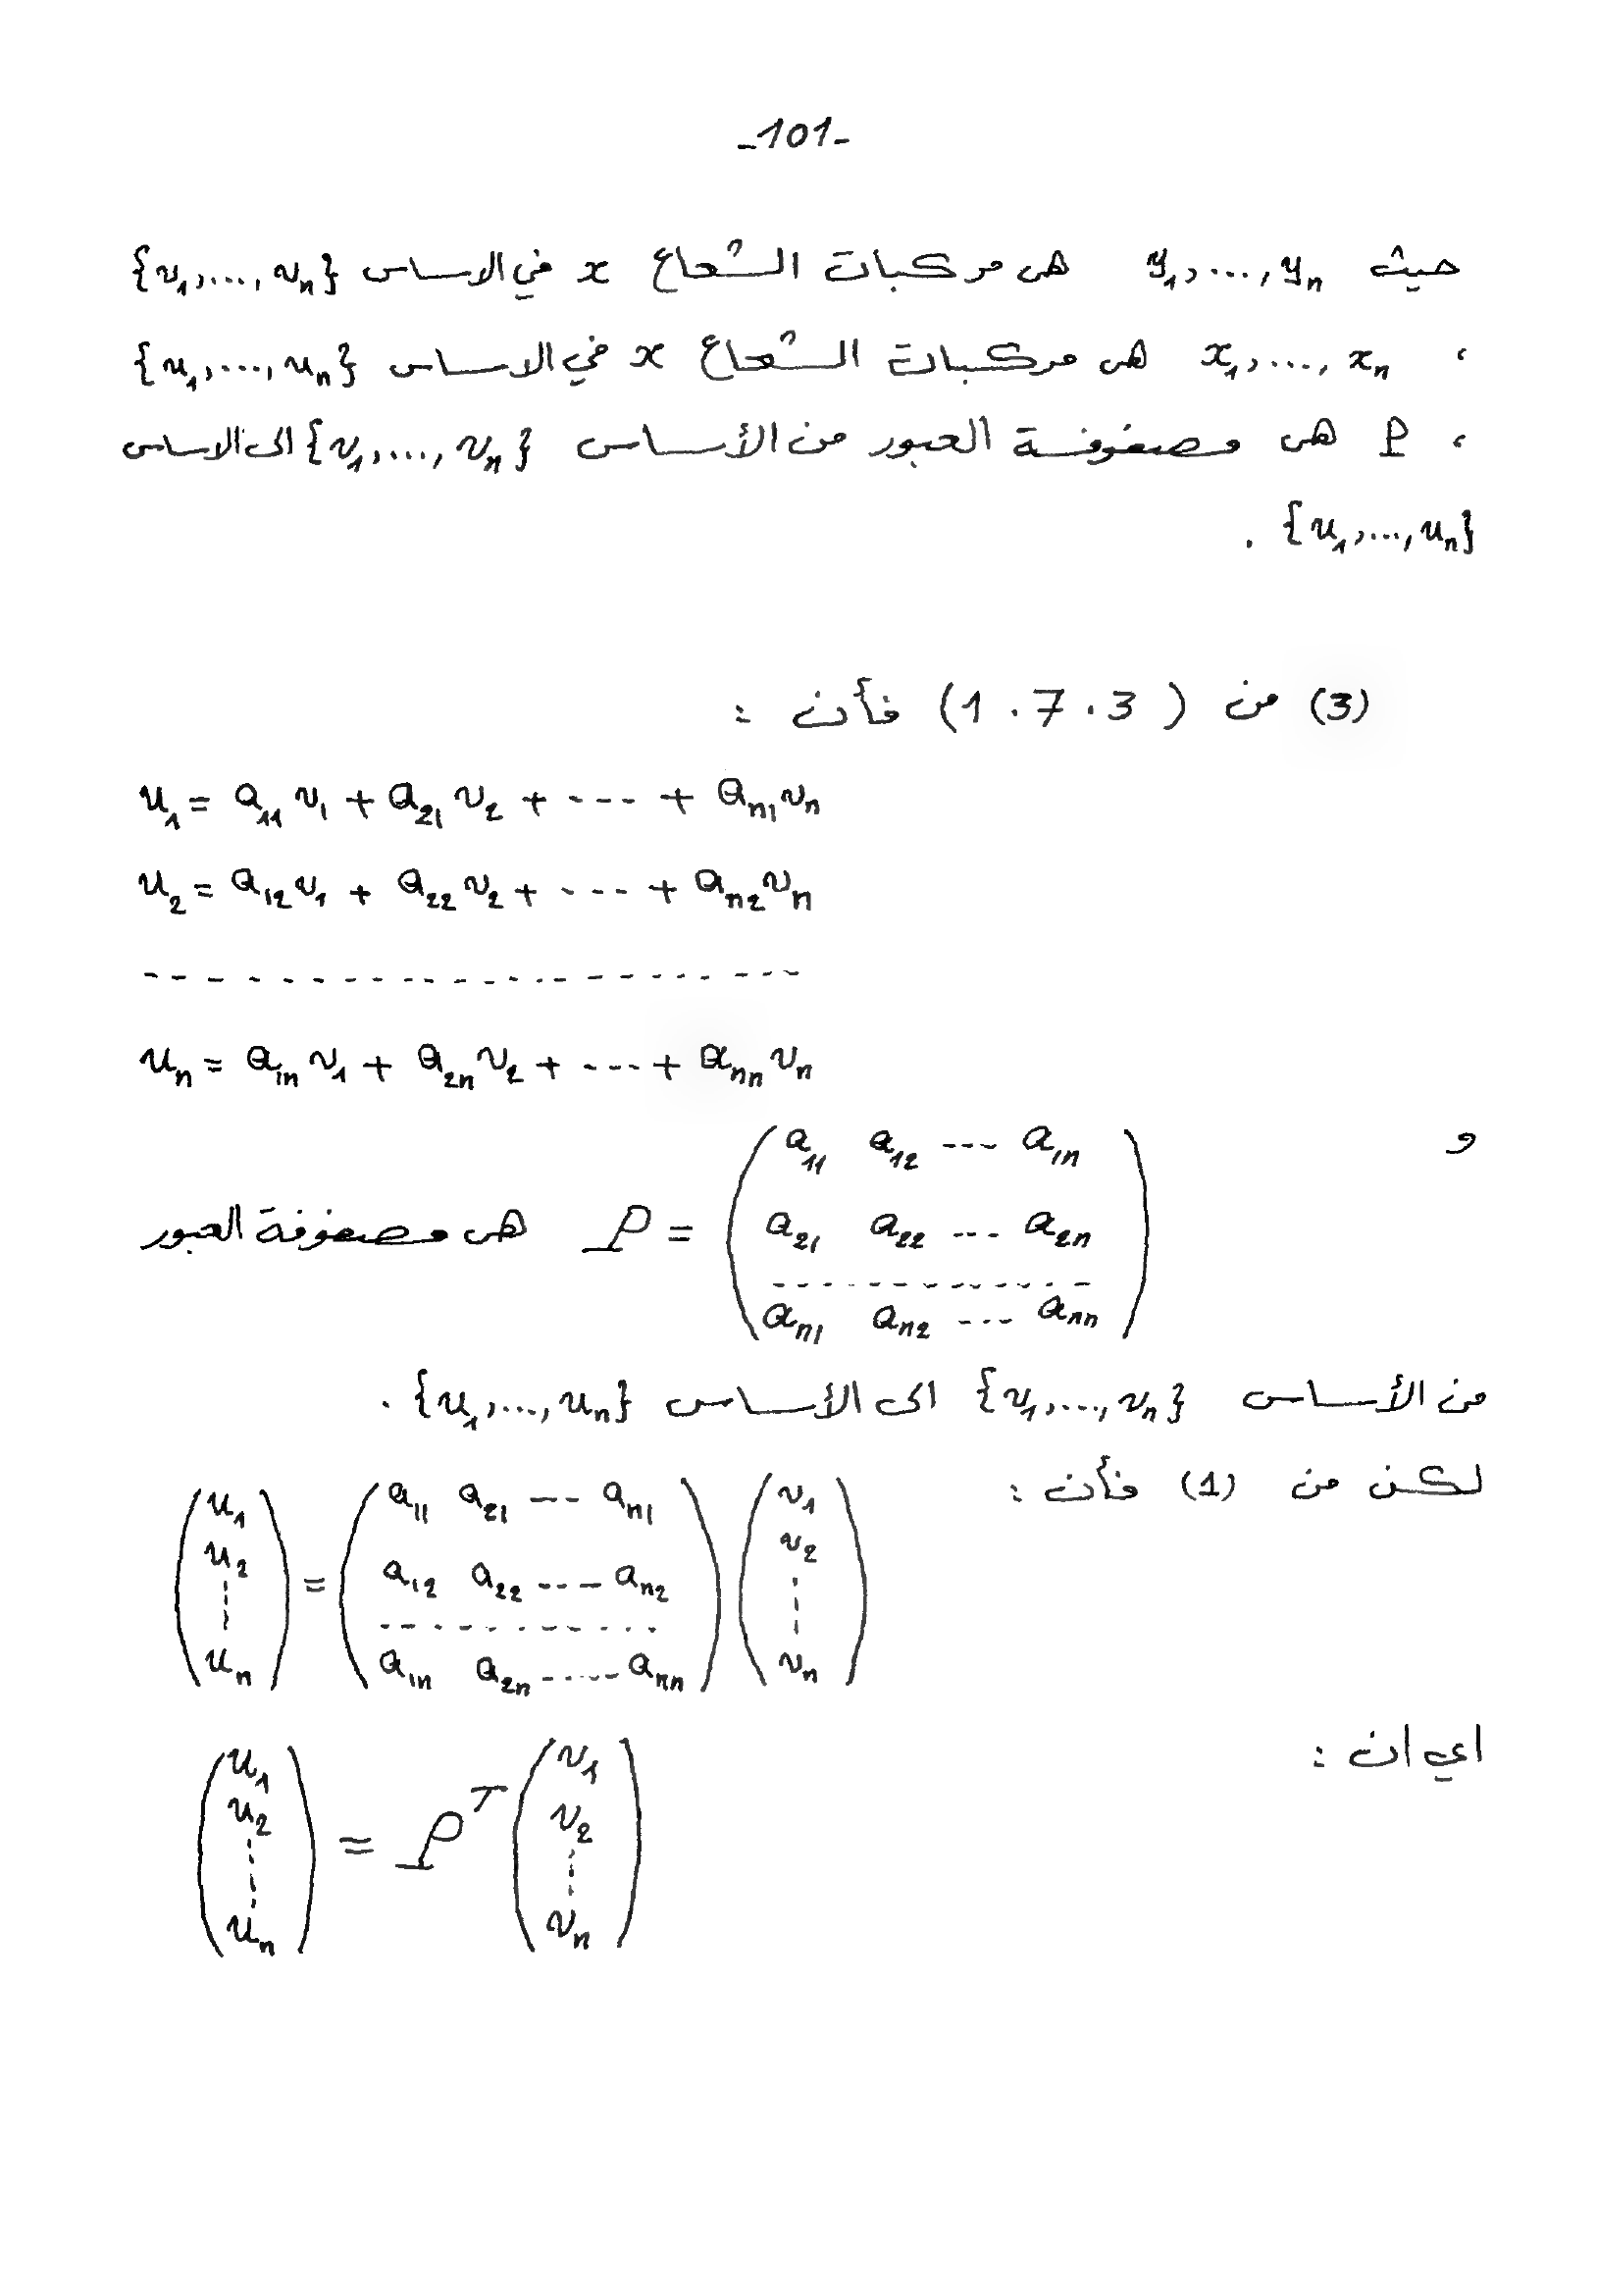 -101-
حيث y₁,...,yₙ هي مركبات الشعاع x في الاساس {v₁,...,vₙ}
، x₁,...,xₙ هي مركبات الشعاع x في الاساس {u₁,...,uₙ}
، P هي مصفوفة العبور من الأساس {v₁,...,vₙ} الى الاساس
{u₁,...,uₙ} .
(3) من (1.7.3) فأن :
u₁ = a₁₁ v₁ + a₂₁ v₂ + ---- + aₙ₁ vₙ
u₂ = a₁₂ v₁ + a₂₂ v₂ + ---- + aₙ₂ vₙ
- - - - - - - - - - - - - - - - - - - -
uₙ = a₁ₙ v₁ + a₂ₙ v₂ + ---- + aₙₙ vₙ
و
a₁₁ a₁₂ --- a₁ₙ
P = a₂₁ a₂₂ --- a₂ₙ هي مصفوفة العبور
- - - - - - - - - - - -
aₙ₁ aₙ₂ --- aₙₙ
من الأساس {v₁,...,vₙ} الى الأساس {u₁,...,uₙ} .
لكن من (1) فأن :
(u₁ u₂ ⋮ uₙ) = (a₁₁ a₂₁ --- aₙ₁
a₁₂ a₂₂ ---- aₙ₂
- - - - - - - - - - - -
a₁ₙ a₂ₙ ----- aₙₙ) (v₁ v₂ ⋮ vₙ)
اي ان :
(u₁ u₂ ⋮ uₙ) = Pᵀ (v₁ v₂ ⋮ vₙ)